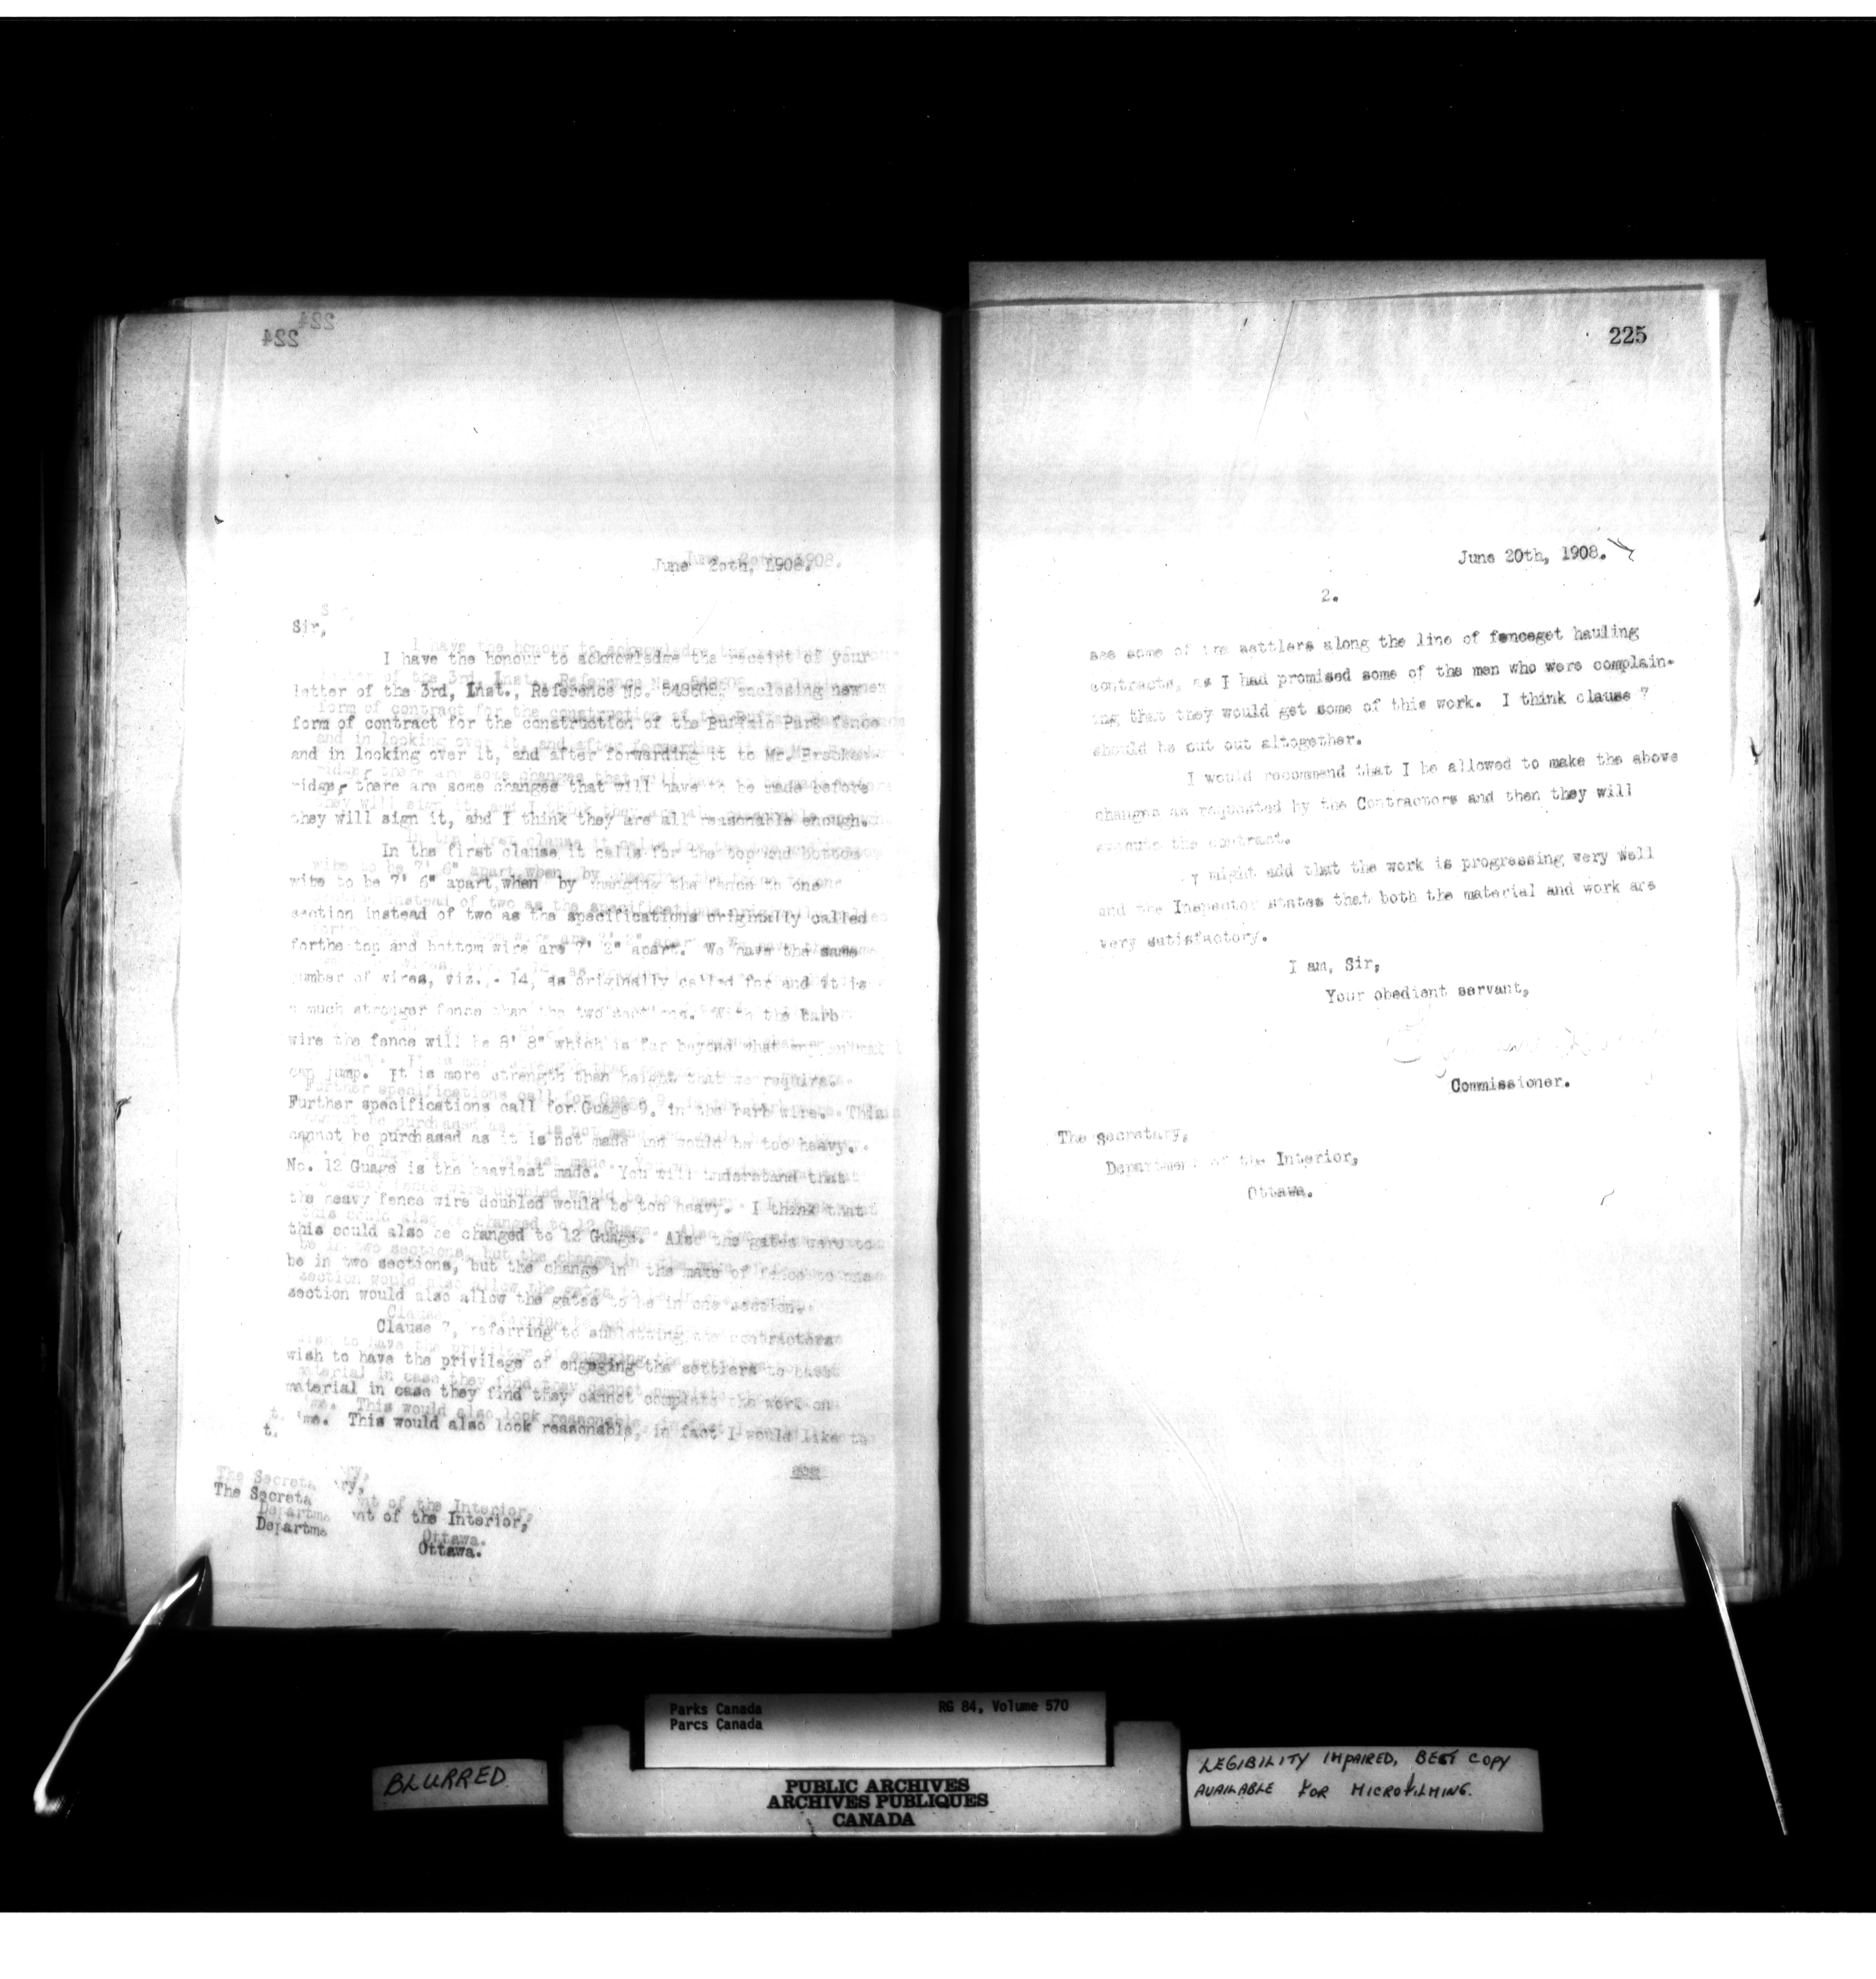 224
June 20th, 1908.
Sir,
I have the honour to acknowledge the receipt of your
letter of the 3rd, Inst., Reference No. 548608, enclosing new
form of contract for the construction of the Buffalo Park fence
and in looking over it, and after forwarding it to Mr.
ridge, there are some changes that will have to be made before
they will sign it, and I think they are all reasonable enough.
In the first clause it calls for the top and bottom
wire to be 7' 6" apart, when by changing the fence to one
section instead of two as the specifications originally called
forthe top and bottom wire are 7' 2" apart. We have the same
number of wires, viz., - 14, as originally called for and it is
a much stronger fence than the two sections. With the barb
wire the fence will be 8' 8" which is far beyond what any animal
can jump. It is more strength than height that we require.
Further specifications call for Guage 9. in the barb wire. This
cannot be purchased as it is not made and would be too heavy.
No. 12 Guage is the heaviest made. You will understand that
the heavy fence wire doubled would be too heavy. I think that
this could also be changed to 12 Guage. Also the gates were to
be in two sections, but the change in the make of fence to one
section would also allow the gates to be in one section.
Clause 7, referring to subletting, the contractors
wish to have the privilege of engaging the settlers to
material in case they find they cannot complete the work on
This would also look reasonable, in fact I would like to
The Secretary,
Department of the Interior,
Ottawa.
225
June 20th, 1908.
2.
see some of the settlers along the line of fenceget hauling
contracts, as I had promised some of the men who were complain-
ing that they would get some of this work. I think clause 7
should be cut out altogether.
I would recommend that I be allowed to make the above
changes as requested by the Contractors and then they will
execute the contract.
I might add that the work is progressing very well
and the Inspector states that both the material and work are
very satisfactory.
I am, Sir,
Your obedient servant,
Commissioner.
The Secretary,
Department of the Interior,
Ottawa.
Parks Canada RG 84, Volume 570
Parcs Canada
BLURRED
PUBLIC ARCHIVES
ARCHIVES PUBLIQUES
CANADA
LEGIBILITY IMPAIRED, BEST COPY
AVAILABLE FOR MICROFILMING.